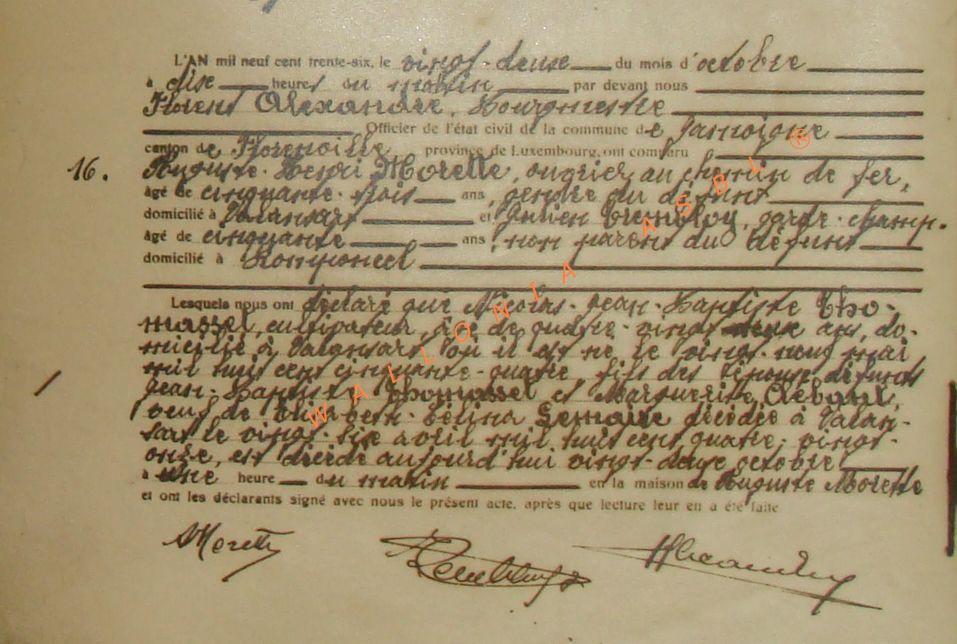 L'AN mil neuf cent trente-six, le vingt-deux du mois d'octobre
à dix heures du matin par devant nous
Florent Alexandre, Bourgmestre
Officier de l'état civil de la commune de Jamoigne
canton de Florenville province de Luxembourg, ont comparu
16. Auguste-Henri Morette, ouvrier au chemin de fer,
âgé de cinquante-trois ans, gendre du défunt
domicilié à Valansart et Julien garde-champ.
âgé de cinquante ans, non parent du défunt
domicilié à Romponcel
Lesquels nous ont déclaré que Nicolas-Jean-Baptiste Tho-
massel, cultivateur, âgé de quatre-vingt-deux ans, do-
micilié à Valansart, où il est né le vingt-neuf mai
mil huit cent cinquante-quatre, fils des époux défunts
Jean-Baptiste Thomassel et Marguerite
veuf de Lemaire décédée à Valan-
sart le vingt-six avril mil huit cent quatre-vingt-
onze, est décédé aujourd'hui vingt-deux octobre
à une heure du matin en la maison de Auguste Morette
et ont les déclarants signé avec nous le présent acte, après que lecture leur en a été faite
AMorette
WALLONIA ASBL ®